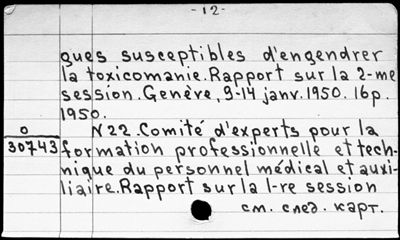 - 12 -
ques susceptibles d'engendrer
la toxicomanie. Rapport sur la 2-me
session. Genève, 9-14 janv. 1950. 16 p.
1950.
0
30743
N 22. Comité d'experts pour la
formation professionnelle et tech-
nique du personnel médical et auxi-
liaire. Rapport sur la 1-re session
см. след. карт.